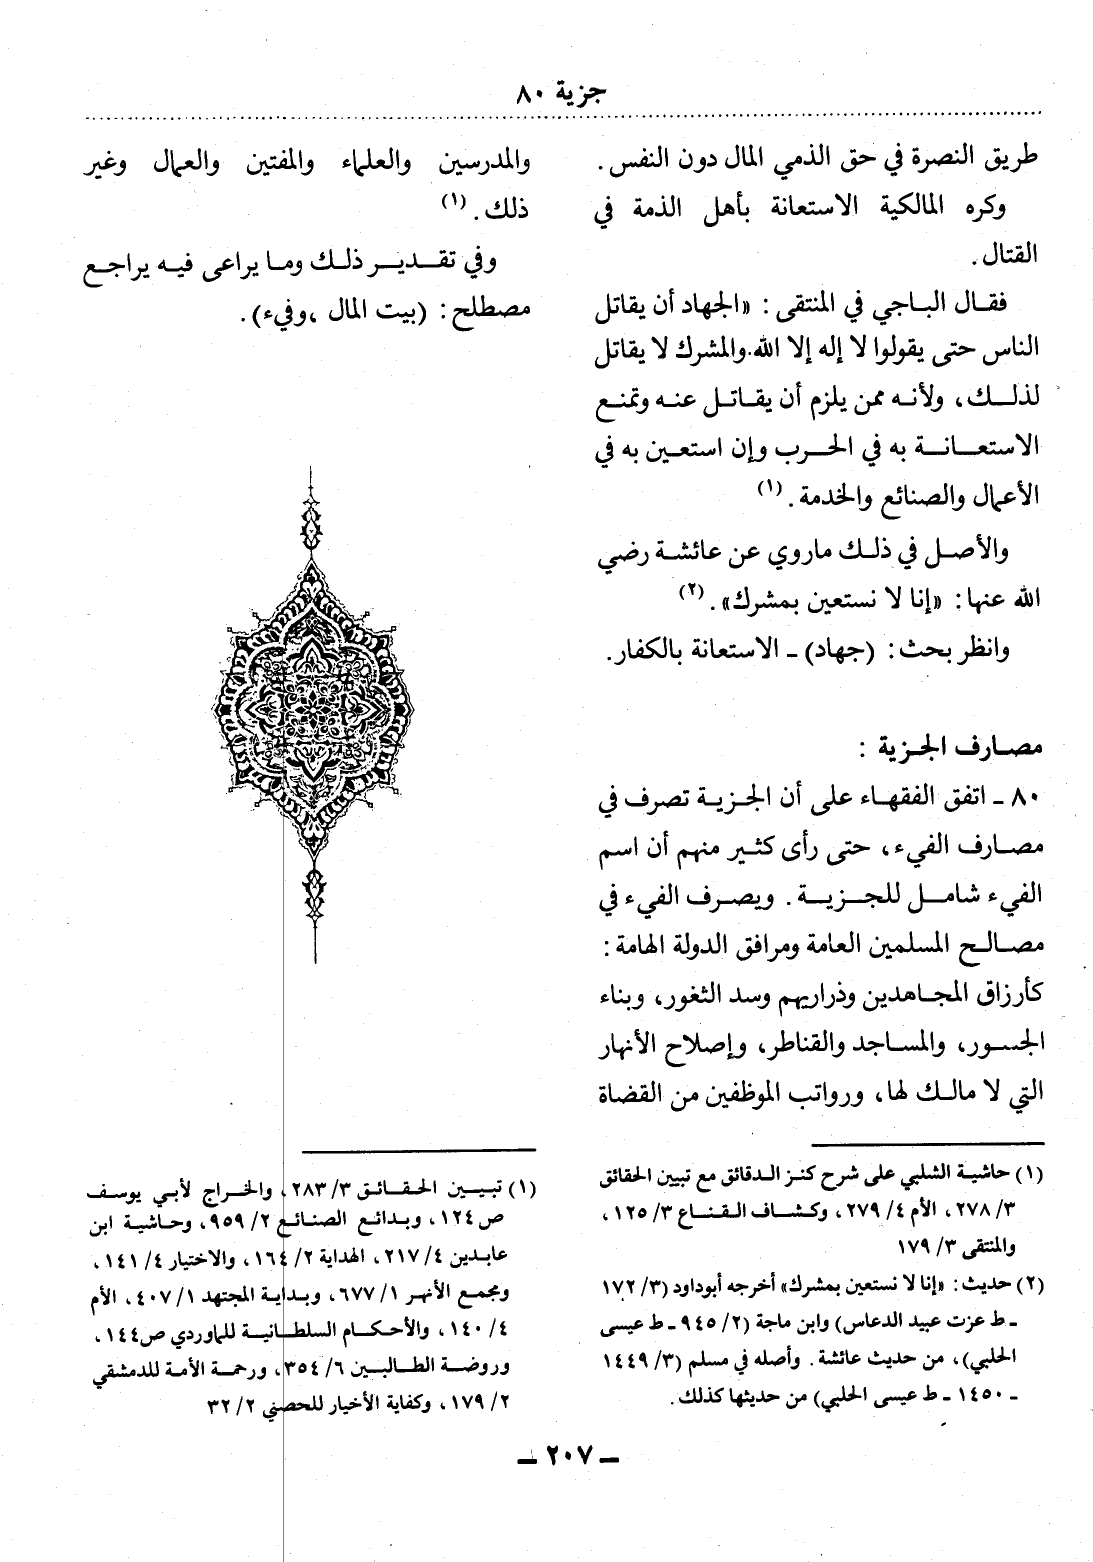 جزية ٨٠
طريق النصرة في حق الذمي المال دون النفس.
وكره المالكية الاستعانة بأهل الذمة في
القتال.
فقال الباجي في المنتقى: «الجهاد أن يقاتل
الناس حتى يقولوا لا إله إلا الله. والمشرك لا يقاتل
لذلك، ولأنه ممن يلزم أن يقاتل عنه وتمنع
الاستعانة به في الحرب وإن استعين به في
الأعمال والصنائع والخدمة. (١)
والأصل في ذلك ماروي عن عائشة رضي
الله عنها: «إنا لا نستعين بمشرك». (٢)
وانظر بحث: (جهاد) ـ الاستعانة بالكفار.
مصارف الجزية :
٨٠ ـ اتفق الفقهاء على أن الجزية تصرف في
مصارف الفيء، حتى رأى كثير منهم أن اسم
الفيء شامل للجزية. ويصرف الفيء في
مصالح المسلمين العامة ومرافق الدولة الهامة:
كأرزاق المجاهدين وذراريهم وسد الثغور، وبناء
الجسور، والمساجد والقناطر، وإصلاح الأنهار
التي لا مالك لها، ورواتب الموظفين من القضاة
(١) حاشية الشلبي على شرح كنز الدقائق مع تبيين الحقائق
٣/ ٢٧٨، الأم ٤/ ٢٧٩، وكشاف القناع ٣/ ١٢٥،
والمنتقى ٣/ ١٧٩
(٢) حديث: «إنا لا نستعين بمشرك» أخرجه أبوداود (٣/ ١٧٢
ـ ط عزت عبيد الدعاس) وابن ماجة (٢/ ٩٤٥ ـ ط عيسى
الحلبي)، من حديث عائشة. وأصله في مسلم (٣/ ١٤٤٩
ـ ١٤٥٠ ـ ط عيسى الحلبي) من حديثها كذلك.
والمدرسين والعلماء والمفتين والعمال وغير
ذلك. (١)
وفي تقدير ذلك وما يراعى فيه يراجع
مصطلح: (بيت المال ،وفيء).
(١) تبيين الحقائق ٣/ ٢٨٣، والخراج لأبي يوسف
ص١٢٤، وبدائع الصنائع ٢/ ٩٥٩، وحاشية ابن
عابدين ٤/ ٢١٧، الهداية ٢/ ١٦٤، والاختيار ٤/ ١٤١،
ومجمع الأنهر ١/ ٦٧٧، وبداية المجتهد ١/ ٤٠٧، الأم
٤/ ١٤٠، والأحكام السلطانية للماوردي ص١٤٤،
وروضة الطالبين ٦/ ٣٥٤، ورحمة الأمة للدمشقي
٢/ ١٧٩، وكفاية الأخيار للحصني ٢/ ٣٢
ـ ٢٠٧ ـ